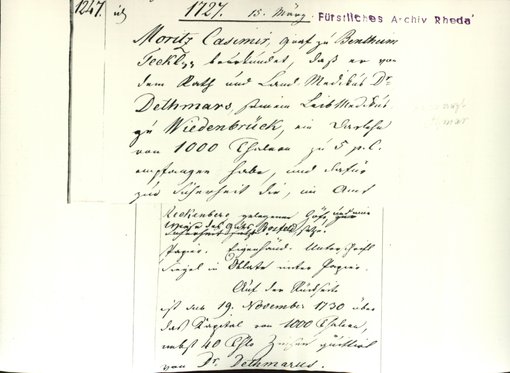 1247. 1727. 15. März. Fürstliches Archiv Rheda
Moritz Casimir, Graf zu Bentheim
Teckl., bekundet, daß er von
dem Rath und Land Medikus Dr.
Dethmars, seinem Leib Medikus
zu Wiedenbrück, ein Darlehn
von 1000 Thalern zu 5 p.C.
empfangen habe, und dafür
zur Sicherheit die, im Amt
Reckenberg gelegenen
Papier. Eigenhänd. Unterschrift
Siegel in Oblate unter Papier.
Auf der Rückseite
ist den 19. November 1730 über
das Kapital von 1000 Thalern,
nebst 40 Thlr Zinsen quittirt
von Dr. Dethmarus.